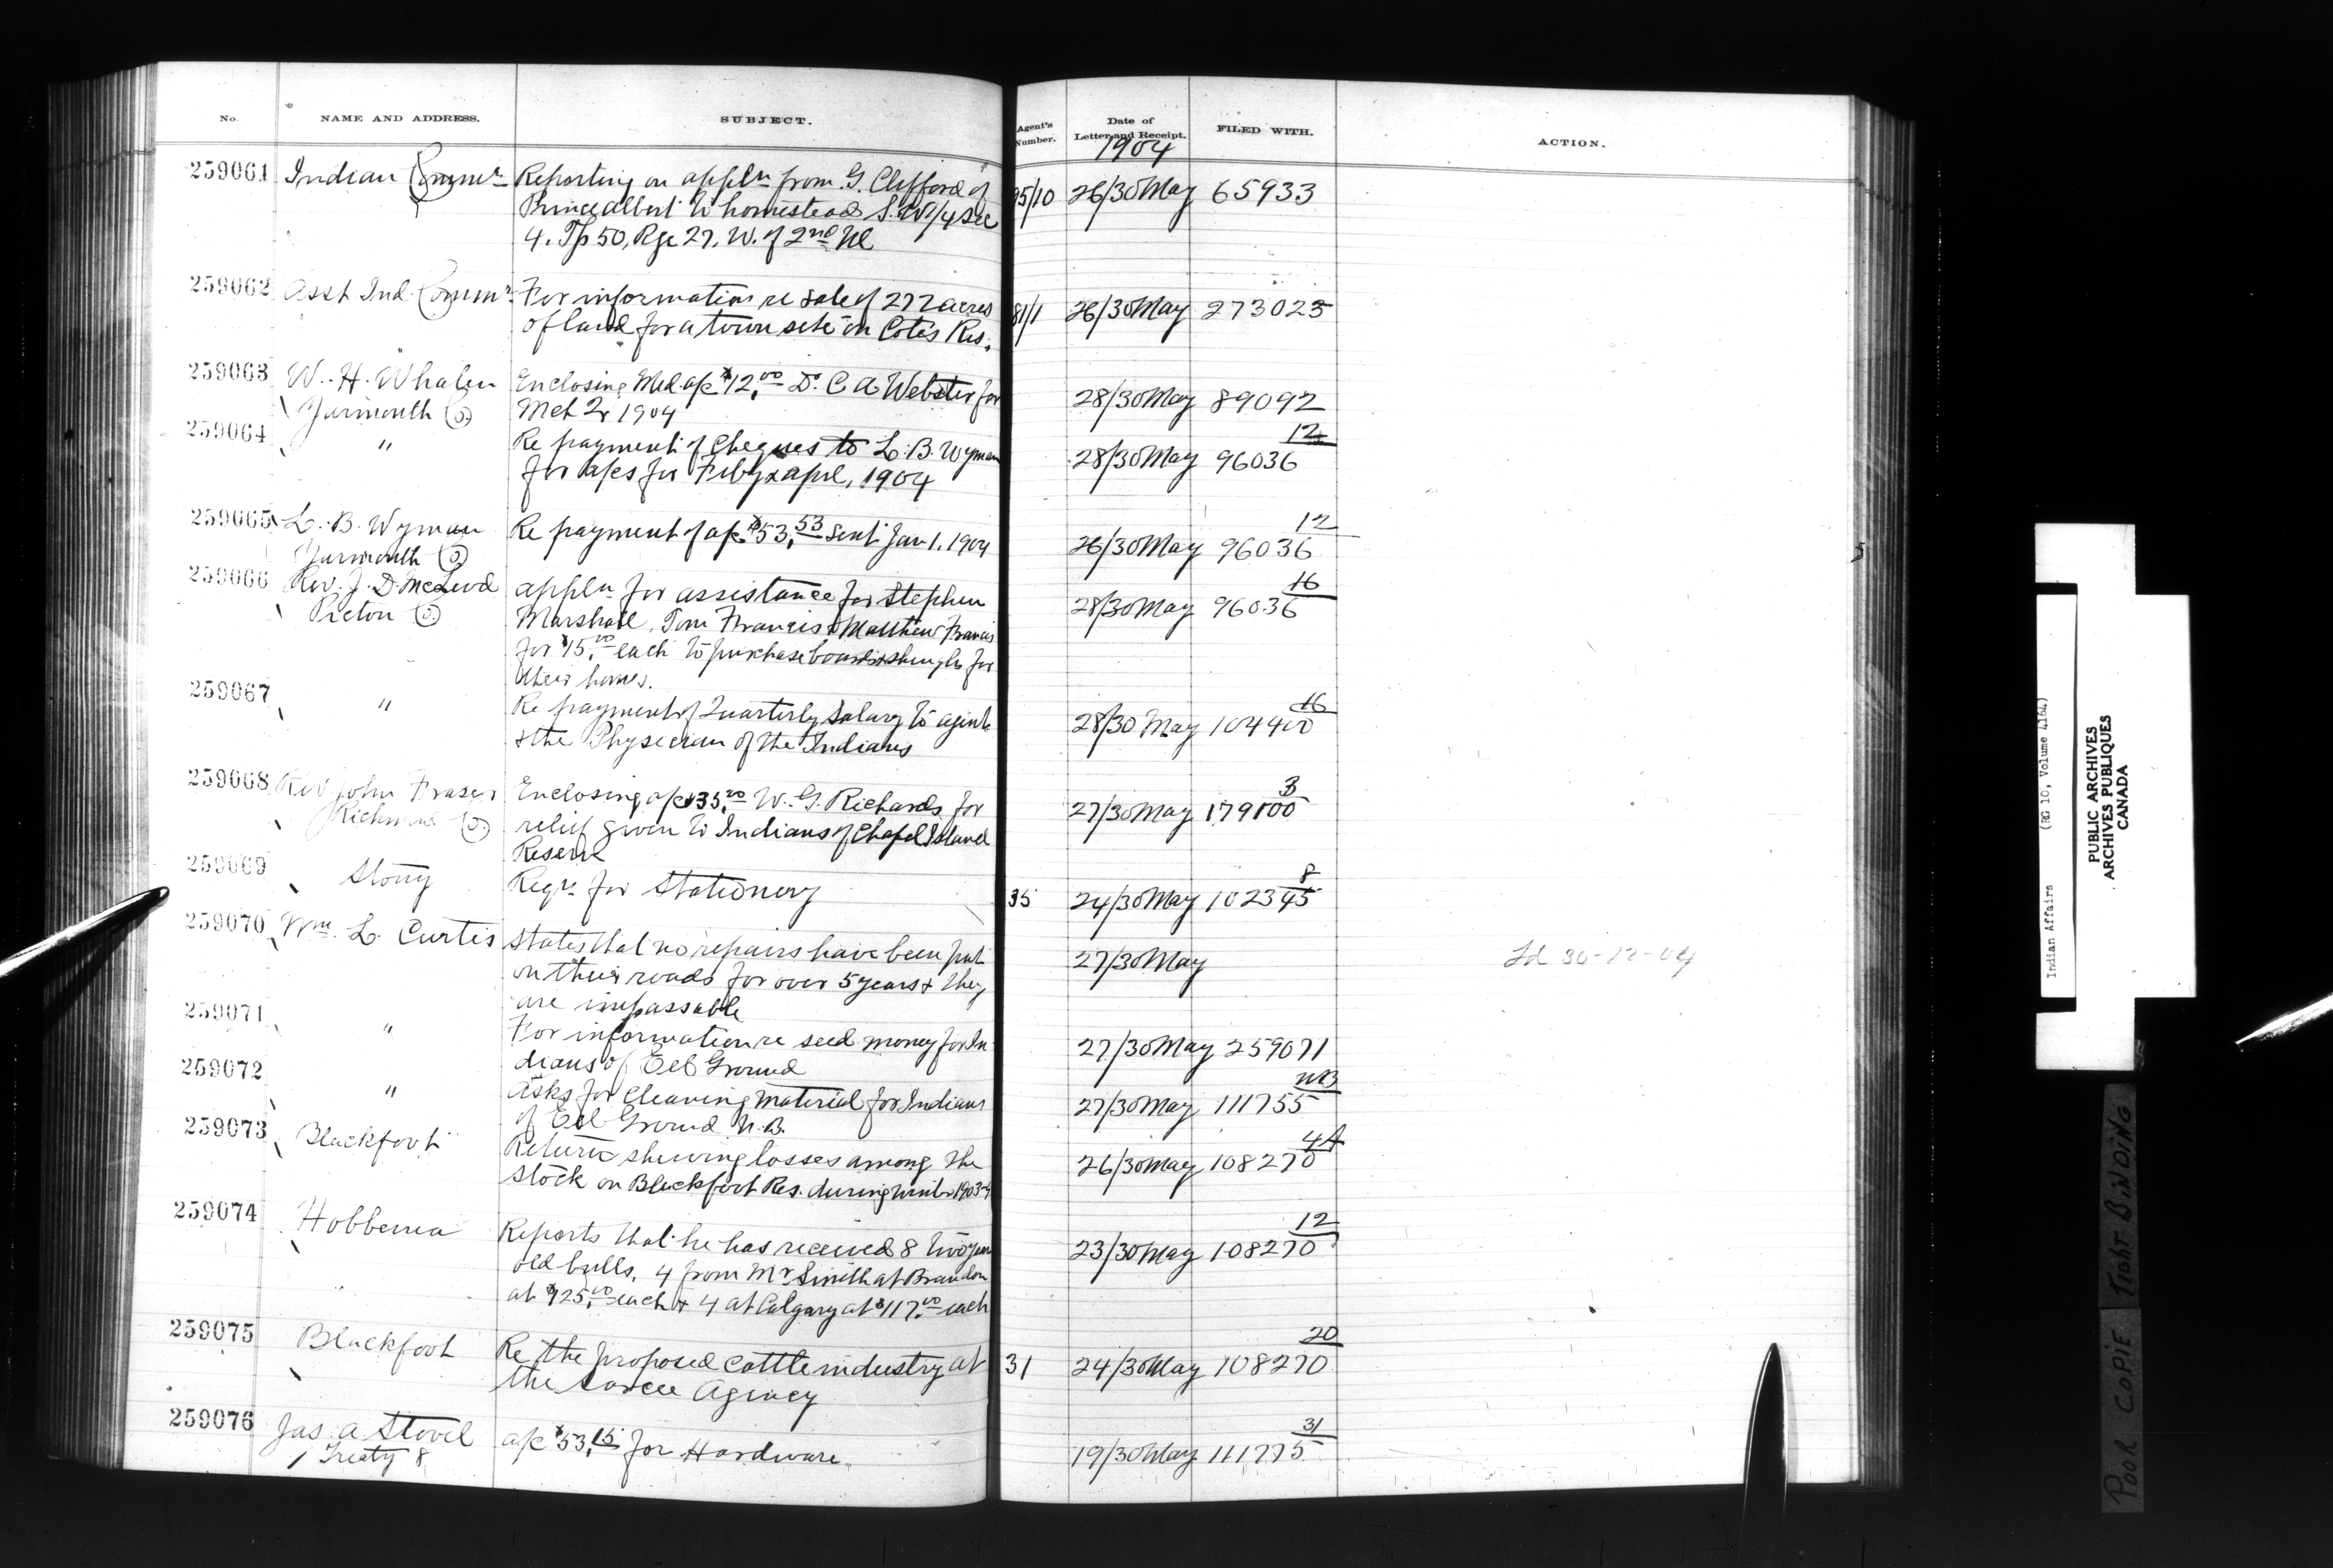 No.
NAME AND ADDRESS.
SUBJECT.
Agent's Number.
Date of Letter and Receipt.
FILED WITH.
ACTION.
1904
259061 Indian Commr Reporting on appln from G. Clifford of 95/10 26/30 May 65933
Prince Albert to homestead S.W 1/4 Sec
4. Tp 50, Rge 27, W. of 2nd M
259062 Asst Ind. Commr For information re sale of 272 acres 81/1 26/30 May 273023
of land for a town site on Cote's Res.
259063 W. H. Whalen Enclosing Med. a/c $12.00 Dr. C A Webster for 28/30 May 89092
Yarmouth Co. Mch 2, 1904
12
259064 " Re payment of Cheques to L. B. Wyman 28/30 May 96036
for a/cs for Feby & Apl, 1904
12
259065 L. B. Wyman Re payment of a/c $53.53 sent Jan 1. 1904 26/30 May 96036
Yarmouth Co.
16
259066 Rev. J. D. McLeod appln for assistance for Stephen 28/30 May 96036
Pictou Co. Marshall, Tom Francis & Matthew Francis
for $15.00 each to purchase boards & shingles for
their homes.
16
259067 " Re payment of Quarterly Salary to agent 28/30 May 104400
& the Physician of the Indians
3
259068 Rev. John Fraser Enclosing a/c $35.20 W. G. Richards for 27/30 May 179100
Richmond Co. relief given to Indians of Chapel Island
Reserve
8
259069 Stony Reqn for Stationery 35 24/30 May 102345
259070 Wm. L. Curtis States that no repairs have been put 27/30 May 30-12-04
on their roads for over 5 years & they
are impassable
259071 " For information re seed money for In- 27/30 May 259071
dians of Eel Ground
NB
259072 " Asks for Cleaning material for Indians 27/30 May 111755
of Eel Ground N.B.
4A
259073 Blackfoot Return shewing losses among the 26/30 May 108270
stock on Blackfoot Res. during winter 1903-4
12
259074 Hobbema Reports that he has received 8 two year 23/30 May 108270
old bulls, 4 from Mr Smith at Brandon
at $125.00 each & 4 at Calgary at $117.00 each
20
259075 Blackfoot Re the proposed cattle industry at 31 24/30 May 108270
the Sarcee Agency
31
259076 Jas. A Stovel a/c $53.15 for Hardware. 19/30 May 111775
Treaty 8
Indian Affairs (RG 10, Volume 4164)
PUBLIC ARCHIVES
ARCHIVES PUBLIQUES
CANADA
POOR COPIE TIGHT BINDING